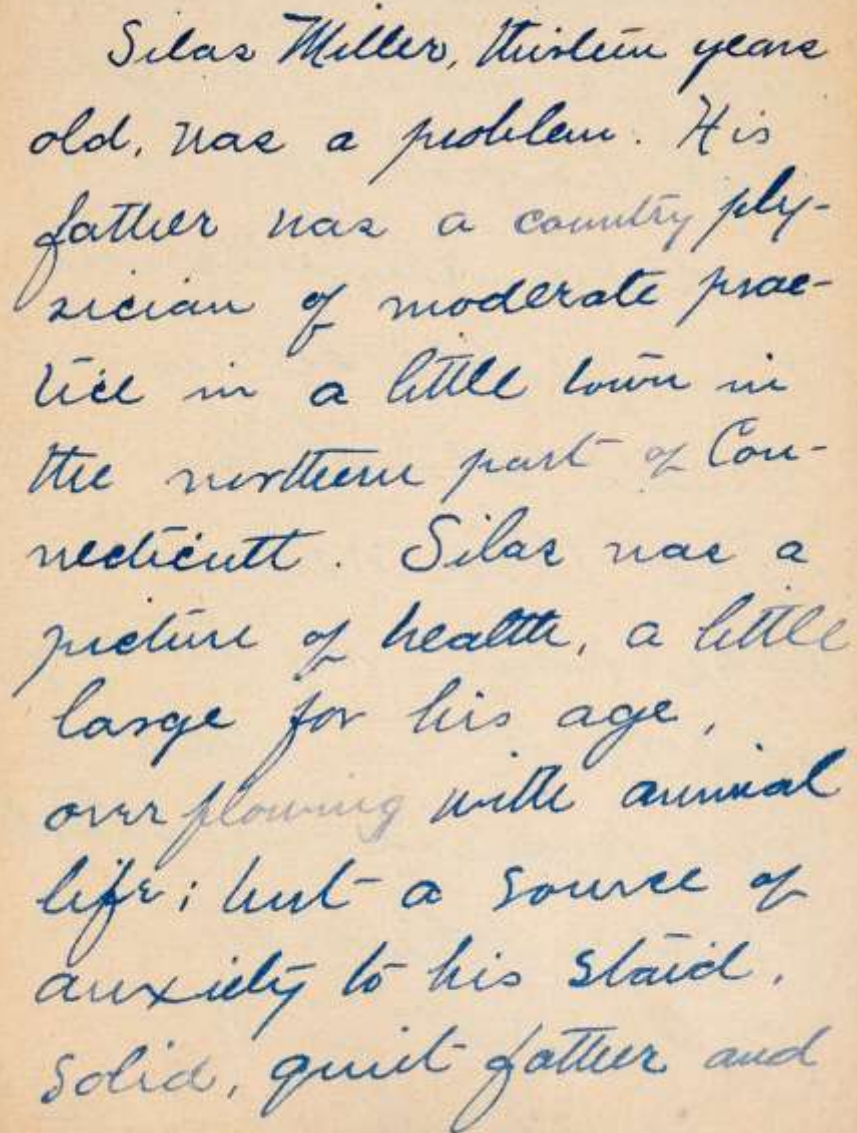 Silas Miller, thirteen years
old, was a problem. His
father was a country phy-
sician of moderate prac-
tice in a little town in
the northern part of Con-
necticutt. Silas was a
picture of health, a little
large for his age,
overflowing with animal
life; but a source of
anxiety to his staid,
solid, quiet father and